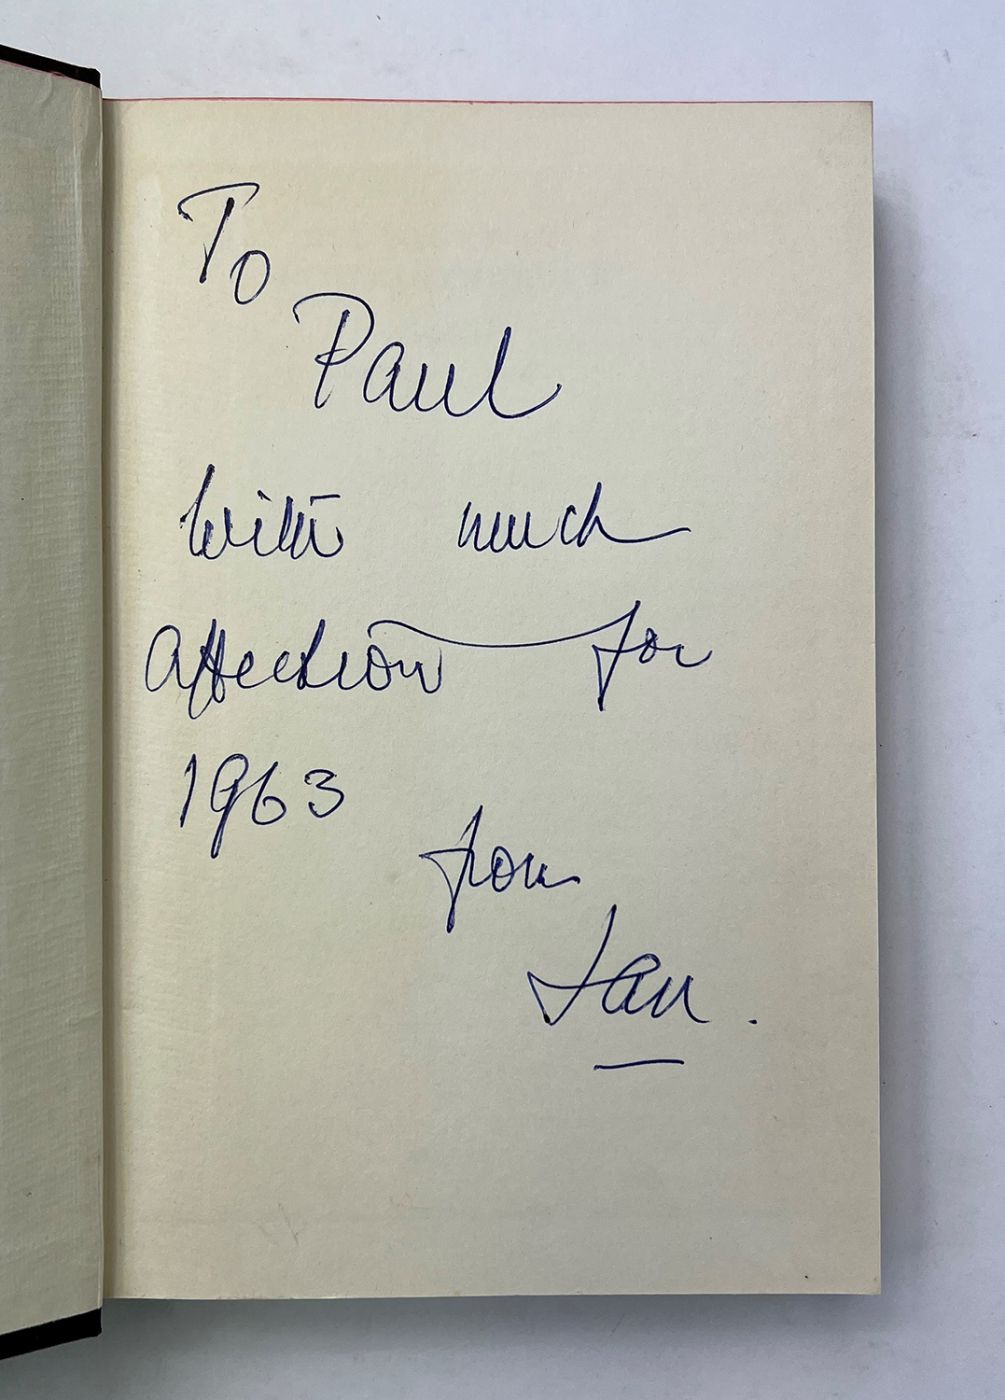 To
Paul
with much
affection for
1963
from
Jan.